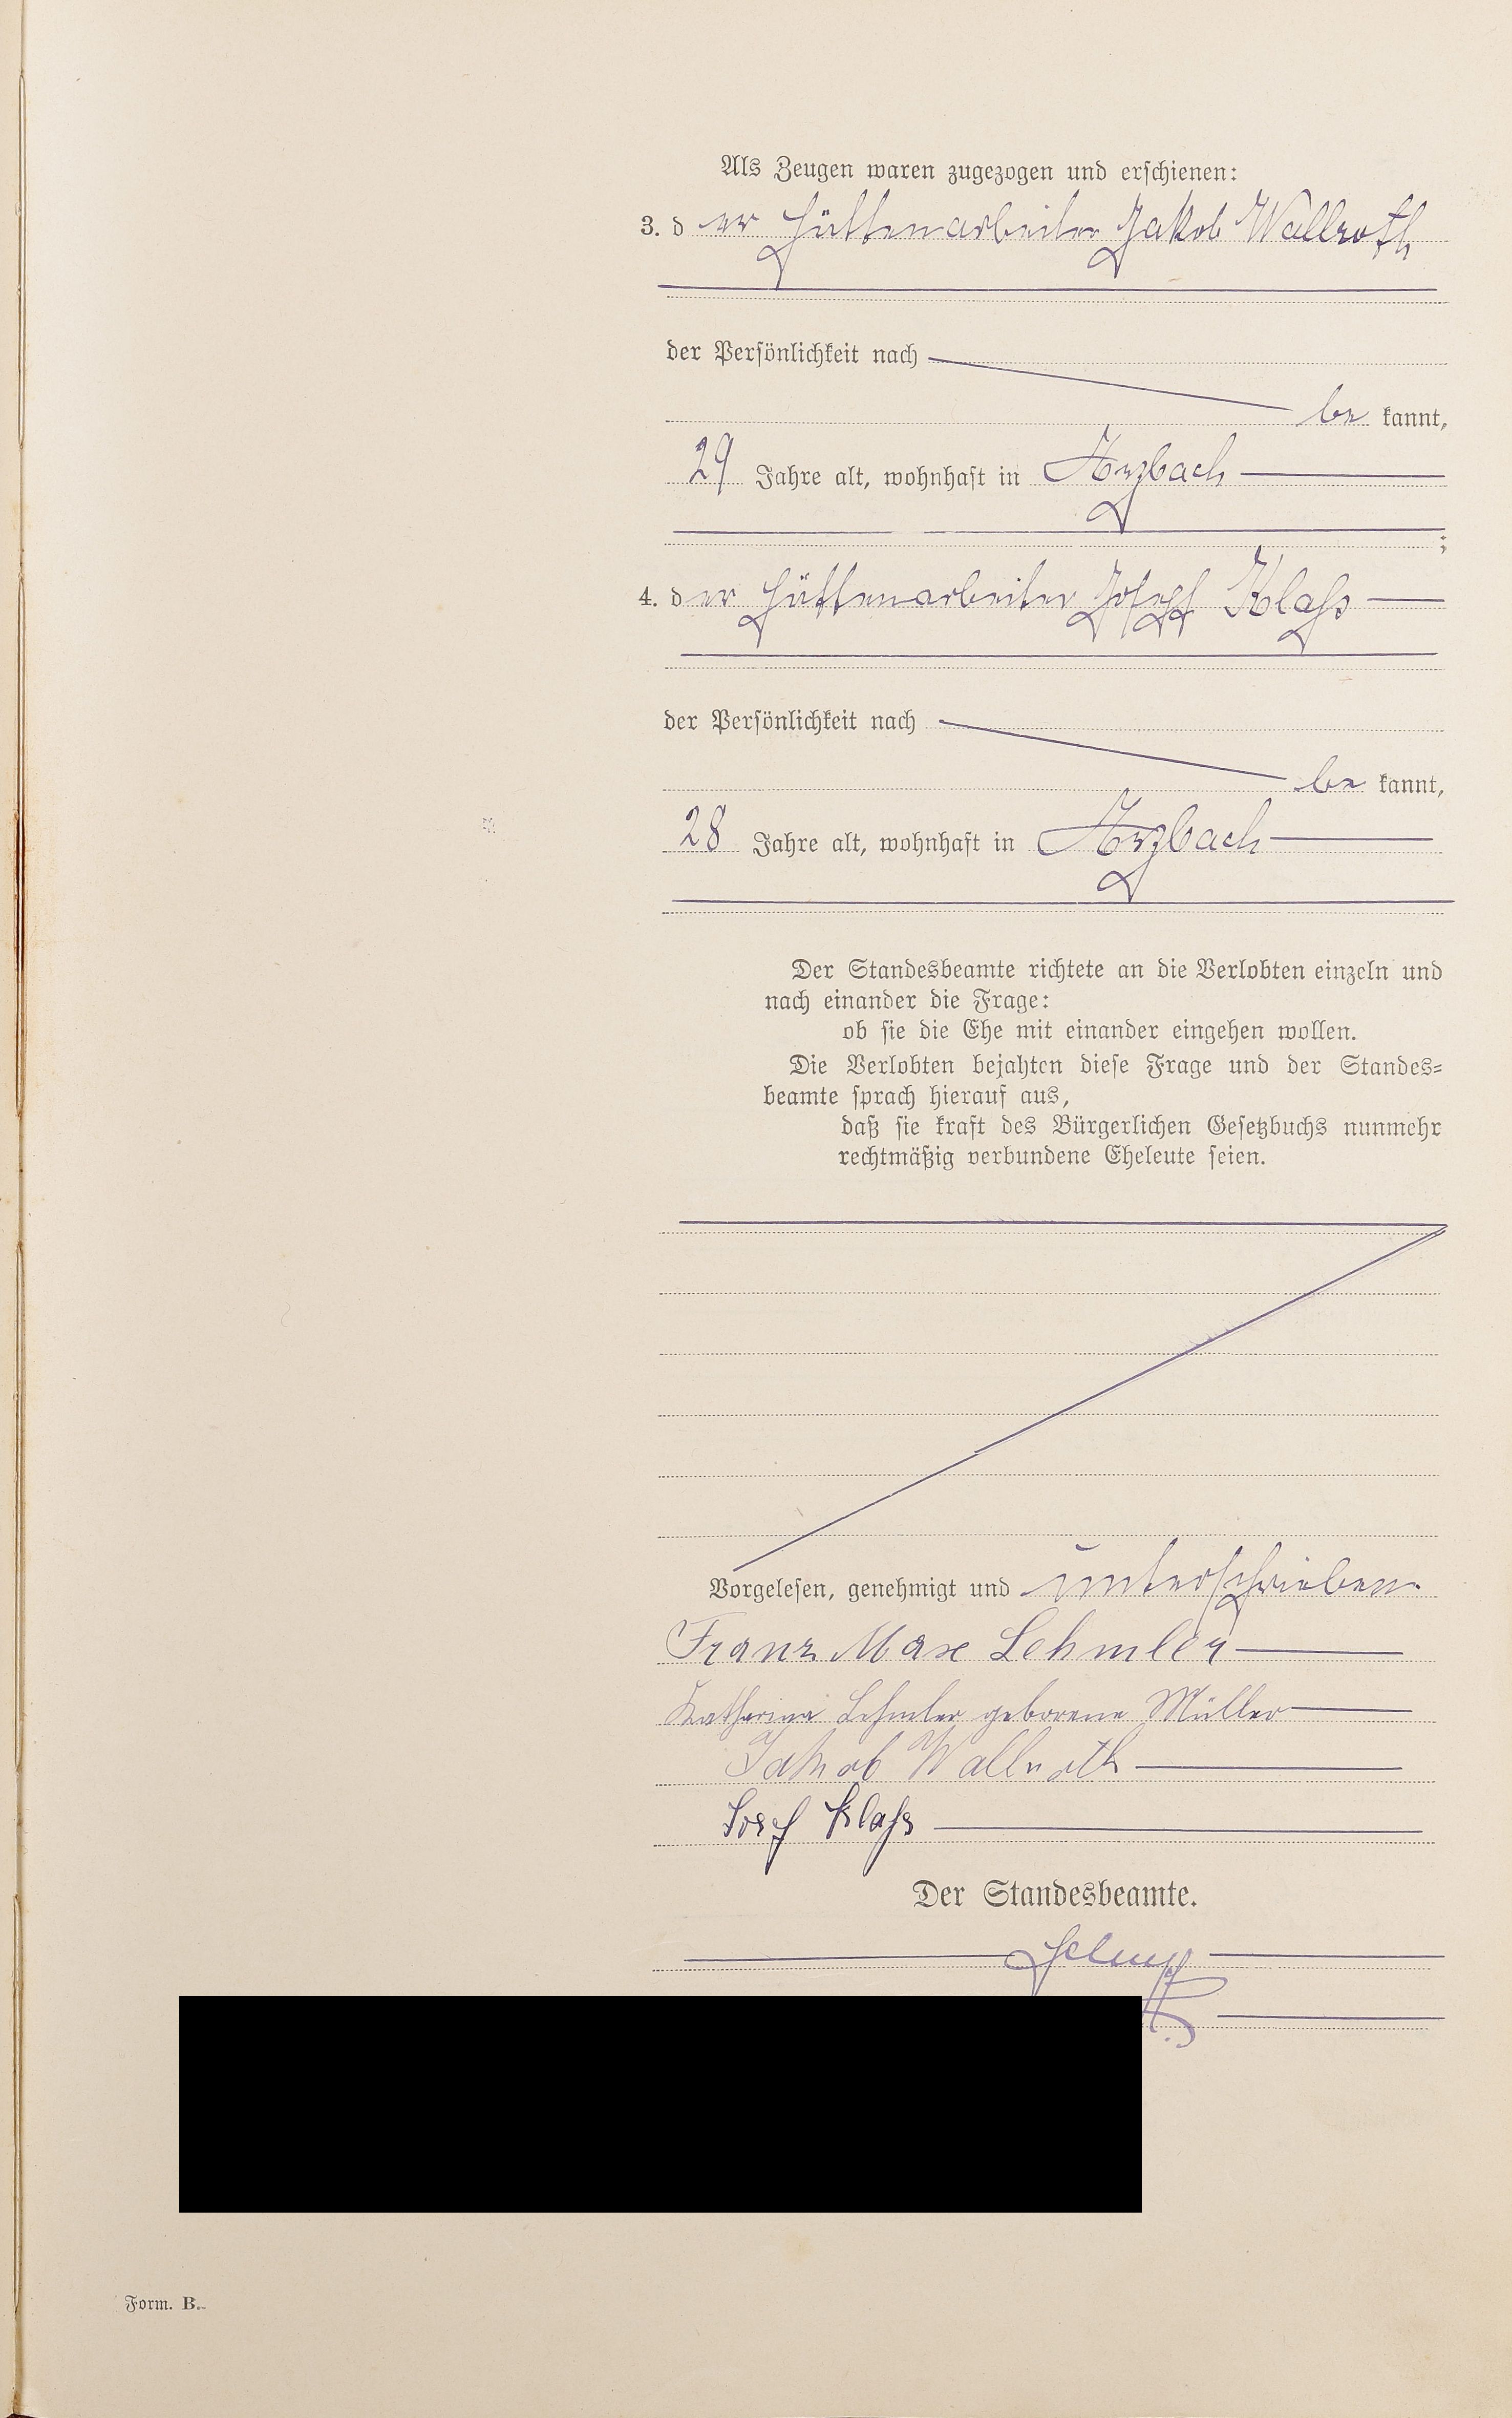 Als Zeugen waren zugezogen und erschienen:
3. der Hüttenarbeiter Jakob Wallroth
der Persönlichkeit nach
be kannt,
29 Jahre alt, wohnhaft in Arzbach
;
4. der Hüttenarbeiter Josef Klaß
der Persönlichkeit nach
be kannt,
28 Jahre alt, wohnhaft in Arzbach
Der Standesbeamte richtete an die Verlobten einzeln und
nach einander die Frage:
ob sie die Ehe mit einander eingehen wollen.
Die Verlobten bejahten diese Frage und der Standes=
beamte sprach hierauf aus,
daß sie kraft des Bürgerlichen Gesetzbuchs nunmehr
rechtmäßig verbundene Eheleute seien.
Vorgelesen, genehmigt und unterschrieben.
Franz Max Lehmler
Katharina Lehmler geborene Müller
Jakob Wallroth
Josef Klaß
Der Standesbeamte.
Form. B.